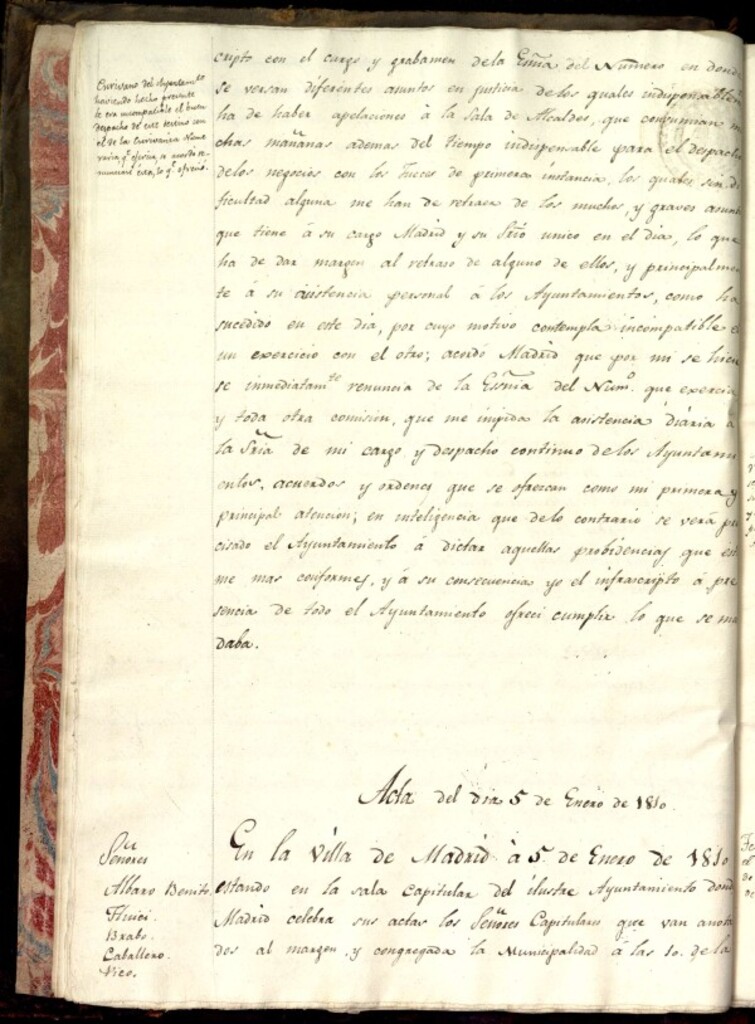 Escrivano del Ayuntamto
haviendo hecho presente
le era incompatible el buen
despacho de este servicio con
el de la Escrivania Nume
raria, qe. ejercia, se acordó re-
nunciase esta, lo qe. ofreció.
cripto con el cargo y grabamen dela Esnia del Numero en donde
se versan diferentes asuntos en justicia delos quales indispensablemte
ha de haber apelaciones à la Sala de Alcaldes, que consumian mu
chas mañanas ademas del tiempo indispensable para el despacho
delos negocios con los Jueces de primera instancia, los quales sin di
ficultad alguna me han de retraer de los muchos, y graves asuntos
que tiene à su cargo Madrid y su Srio unico en el dia, lo que
ha de dar margen al retraso de alguno de ellos, y principalmen
te à su asistencia personal à los Ayuntamientos, como ha
sucedido en este dia, por cuyo motivo contempla incompatible el
un exercicio con el otro; acordó Madrid que por mi se hicie
se inmediatamte renuncia de la Esnia del Numo. que exercia
y toda otra comisión, que me impida la asistencia diária à
la Sria de mi cargo y despacho continuo delos Ayuntami
entos, acuerdos y ordenes que se ofrezcan como mi primera y
principal atencion; en inteligencia que delo contrario se verá pre
cisado el Ayuntamiento à dictar aquellas probidencias que esti
me mas conformes, y à su consecuencia yo el infrascripto à pre
sencia de todo el Ayuntamiento ofreci cumplir lo que se man
daba.
Acta del dia 5 de Enero de 1810.
Señores
Albaro Benito
Brabo.
Caballero.
Vico.
En la Villa de Madrid à 5 de Enero de 1810
estando en la sala capitular del ilustre Ayuntamiento donde
Madrid celebra sus actas los Señores Capitulares que van anota
dos al margen, y congregada la Municipalidad à las 10. de la